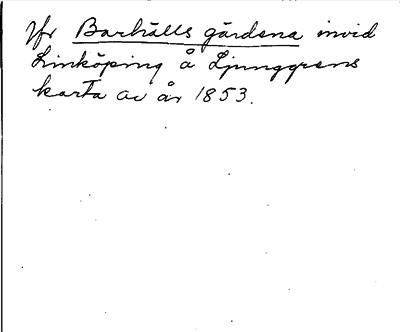 Jfr Barhälls gårdena invid
Linköping å Ljunggrens
karta av år 1853.